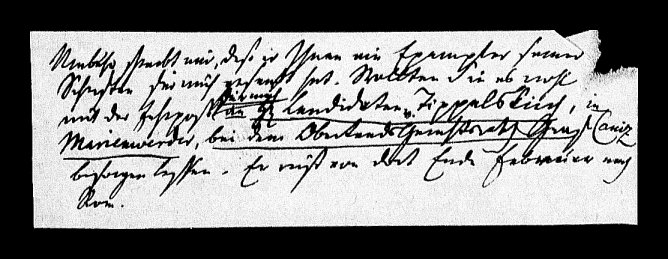 Niebuhr schreibt mir, daß er Ihnen ein Exemplar seiner
Schriften für mich gesandt hat. Wollten Sie es wohl
mit der Fahrpost an Candidaten v. Tippelskirch, in
Marienwerder, bei dem Oberlandsgerichtsrath Graf Caniz
besorgen lassen. Er reist von dort Ende Februar nach
Rom.